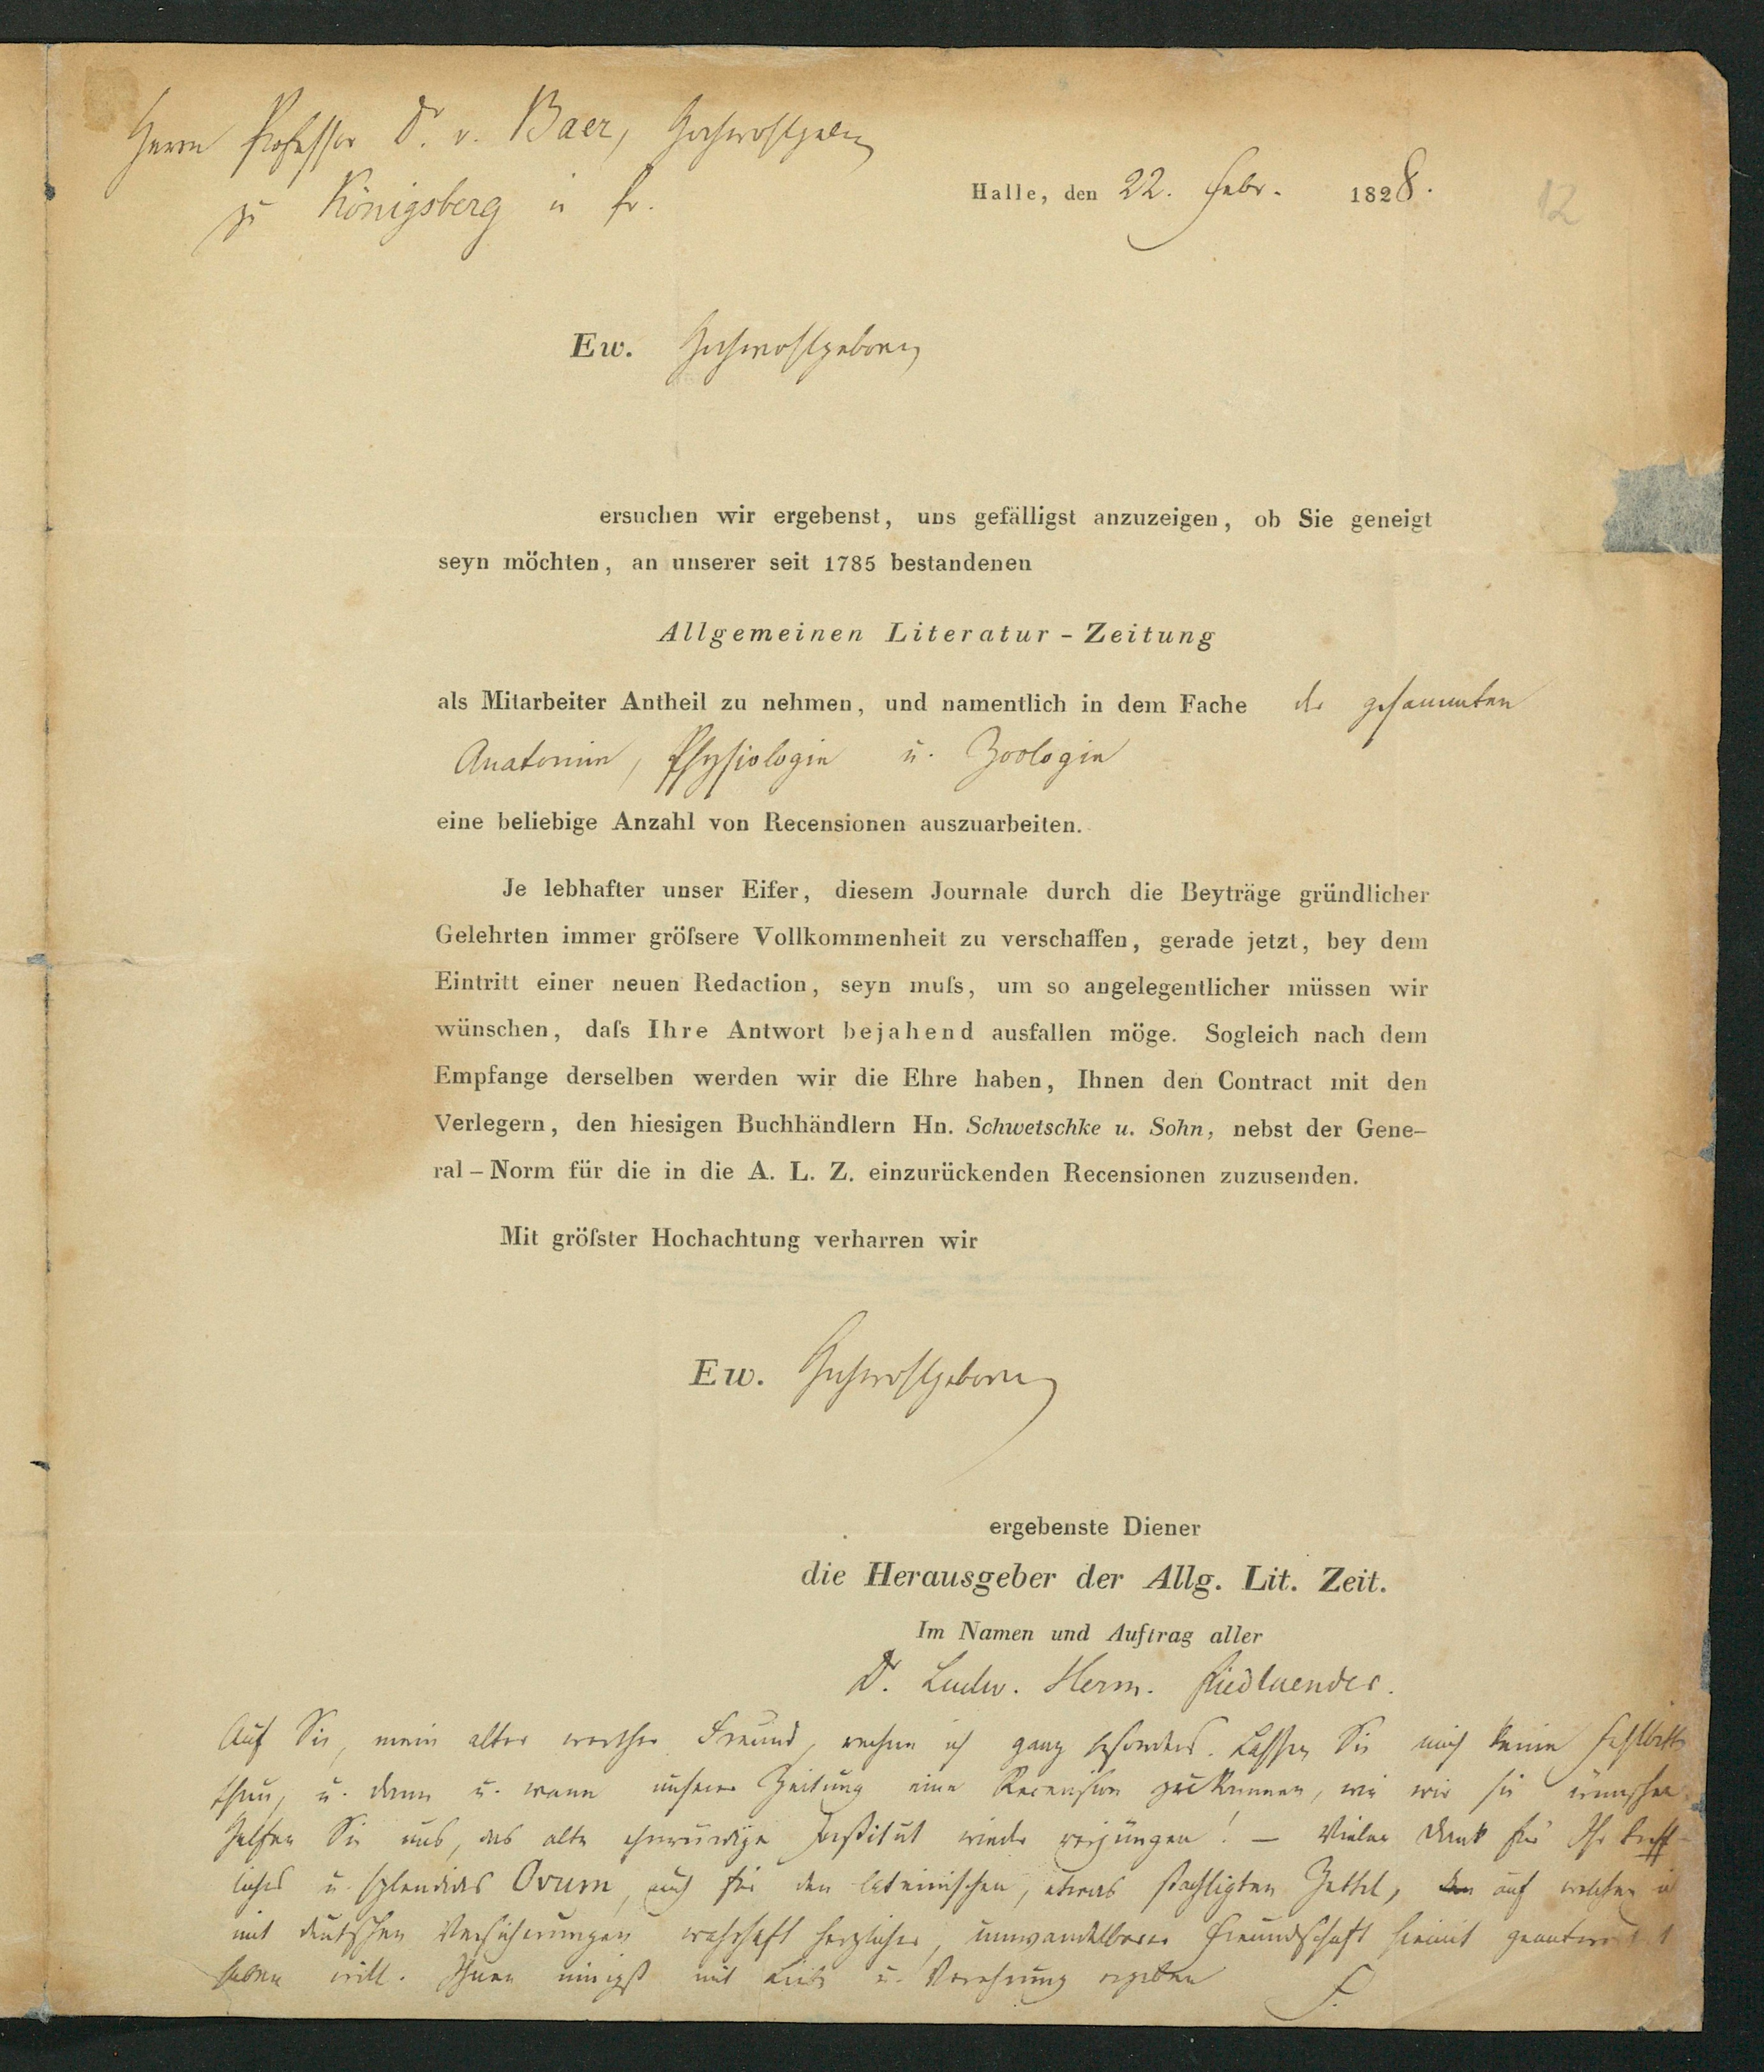 Herrn Professor Dr. v. Baer, Hochwohlgeb.
zu Königsberg in Pr.
Halle, den 22. Febr. 1828.
12
Ew. Hochwohlgeboren
ersuchen wir ergebenst, uns gefälligst anzuzeigen, ob Sie geneigt
seyn möchten, an unserer seit 1785 bestandenen
Allgemeinen Literatur-Zeitung
als Mitarbeiter Antheil zu nehmen, und namentlich in dem Fache der gesammten
Anatomie, Physiologie u. Zoologie
eine beliebige Anzahl von Recensionen auszuarbeiten.
Je lebhafter unser Eifer, diesem Journale durch die Beyträge gründlicher
Gelehrten immer gröſsere Vollkommenheit zu verschaffen, gerade jetzt, bey dem
Eintritt einer neuen Redaction, seyn muſs, um so angelegentlicher müssen wir
wünschen, daſs Ihre Antwort bejahend ausfallen möge. Sogleich nach dem
Empfange derselben werden wir die Ehre haben, Ihnen den Contract mit den
Verlegern, den hiesigen Buchhändlern Hn. Schwetschke u. Sohn, nebst der Gene-
ral-Norm für die in die A. L. Z. einzurückenden Recensionen zuzusenden.
Mit gröſster Hochachtung verharren wir
Ew. Hochwohlgeboren
ergebenste Diener
die Herausgeber der Allg. Lit. Zeit.
Im Namen und Auftrag aller
Dr. Ludw. Herm. Friedlaender.
Auf Sie, mein alter werther Freund, rechne ich ganz besonders. Lassen Sie mich keine Fehlbitte
thun, u. dann u. wann unserer Zeitung eine Recension zukommen, wie wir sie wünschen.
Helfen Sie uns, das alte ehrwürdige Institut wieder verjüngen! – Vielen Dank für Ihr treff-
liches u. splendides Ovum, auch für den lateinischen, etwas stachligten Zettel, auf welchen ich
mit deutschen Versicherungen wahrhaft herzlicher, unwandelbarer Freundschaft hiemit geantwortet
haben will. Ihnen innigst mit Liebe u. Verehrung ergeben F.